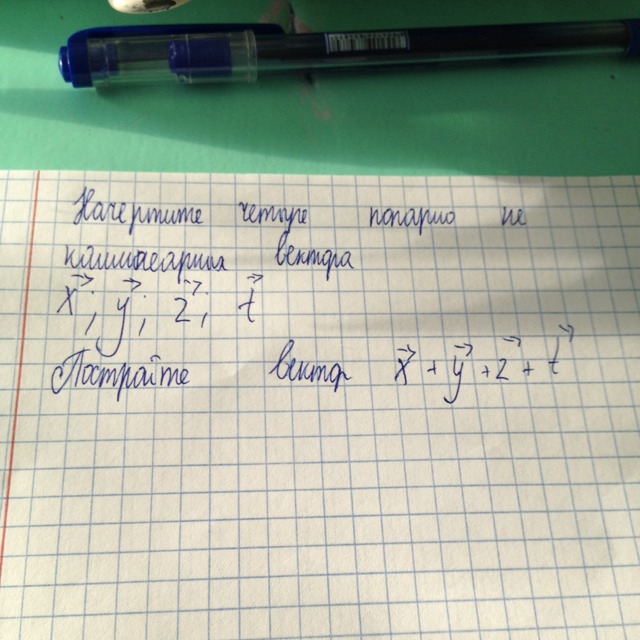 Начертите четыре попарно не
коллинеарных вектора
x⃗; y⃗; z⃗; t⃗
Постройте вектор x⃗ + y⃗ + z⃗ + t⃗